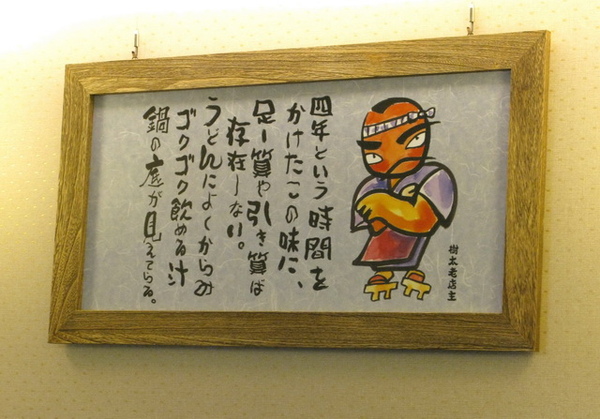 四年という時間を
かけたこの味に、
足し算や引き算は
存在しない。
うどんによくからみ
ゴクゴク飲める汁
鍋の底が見えてくる。
樹太老店主